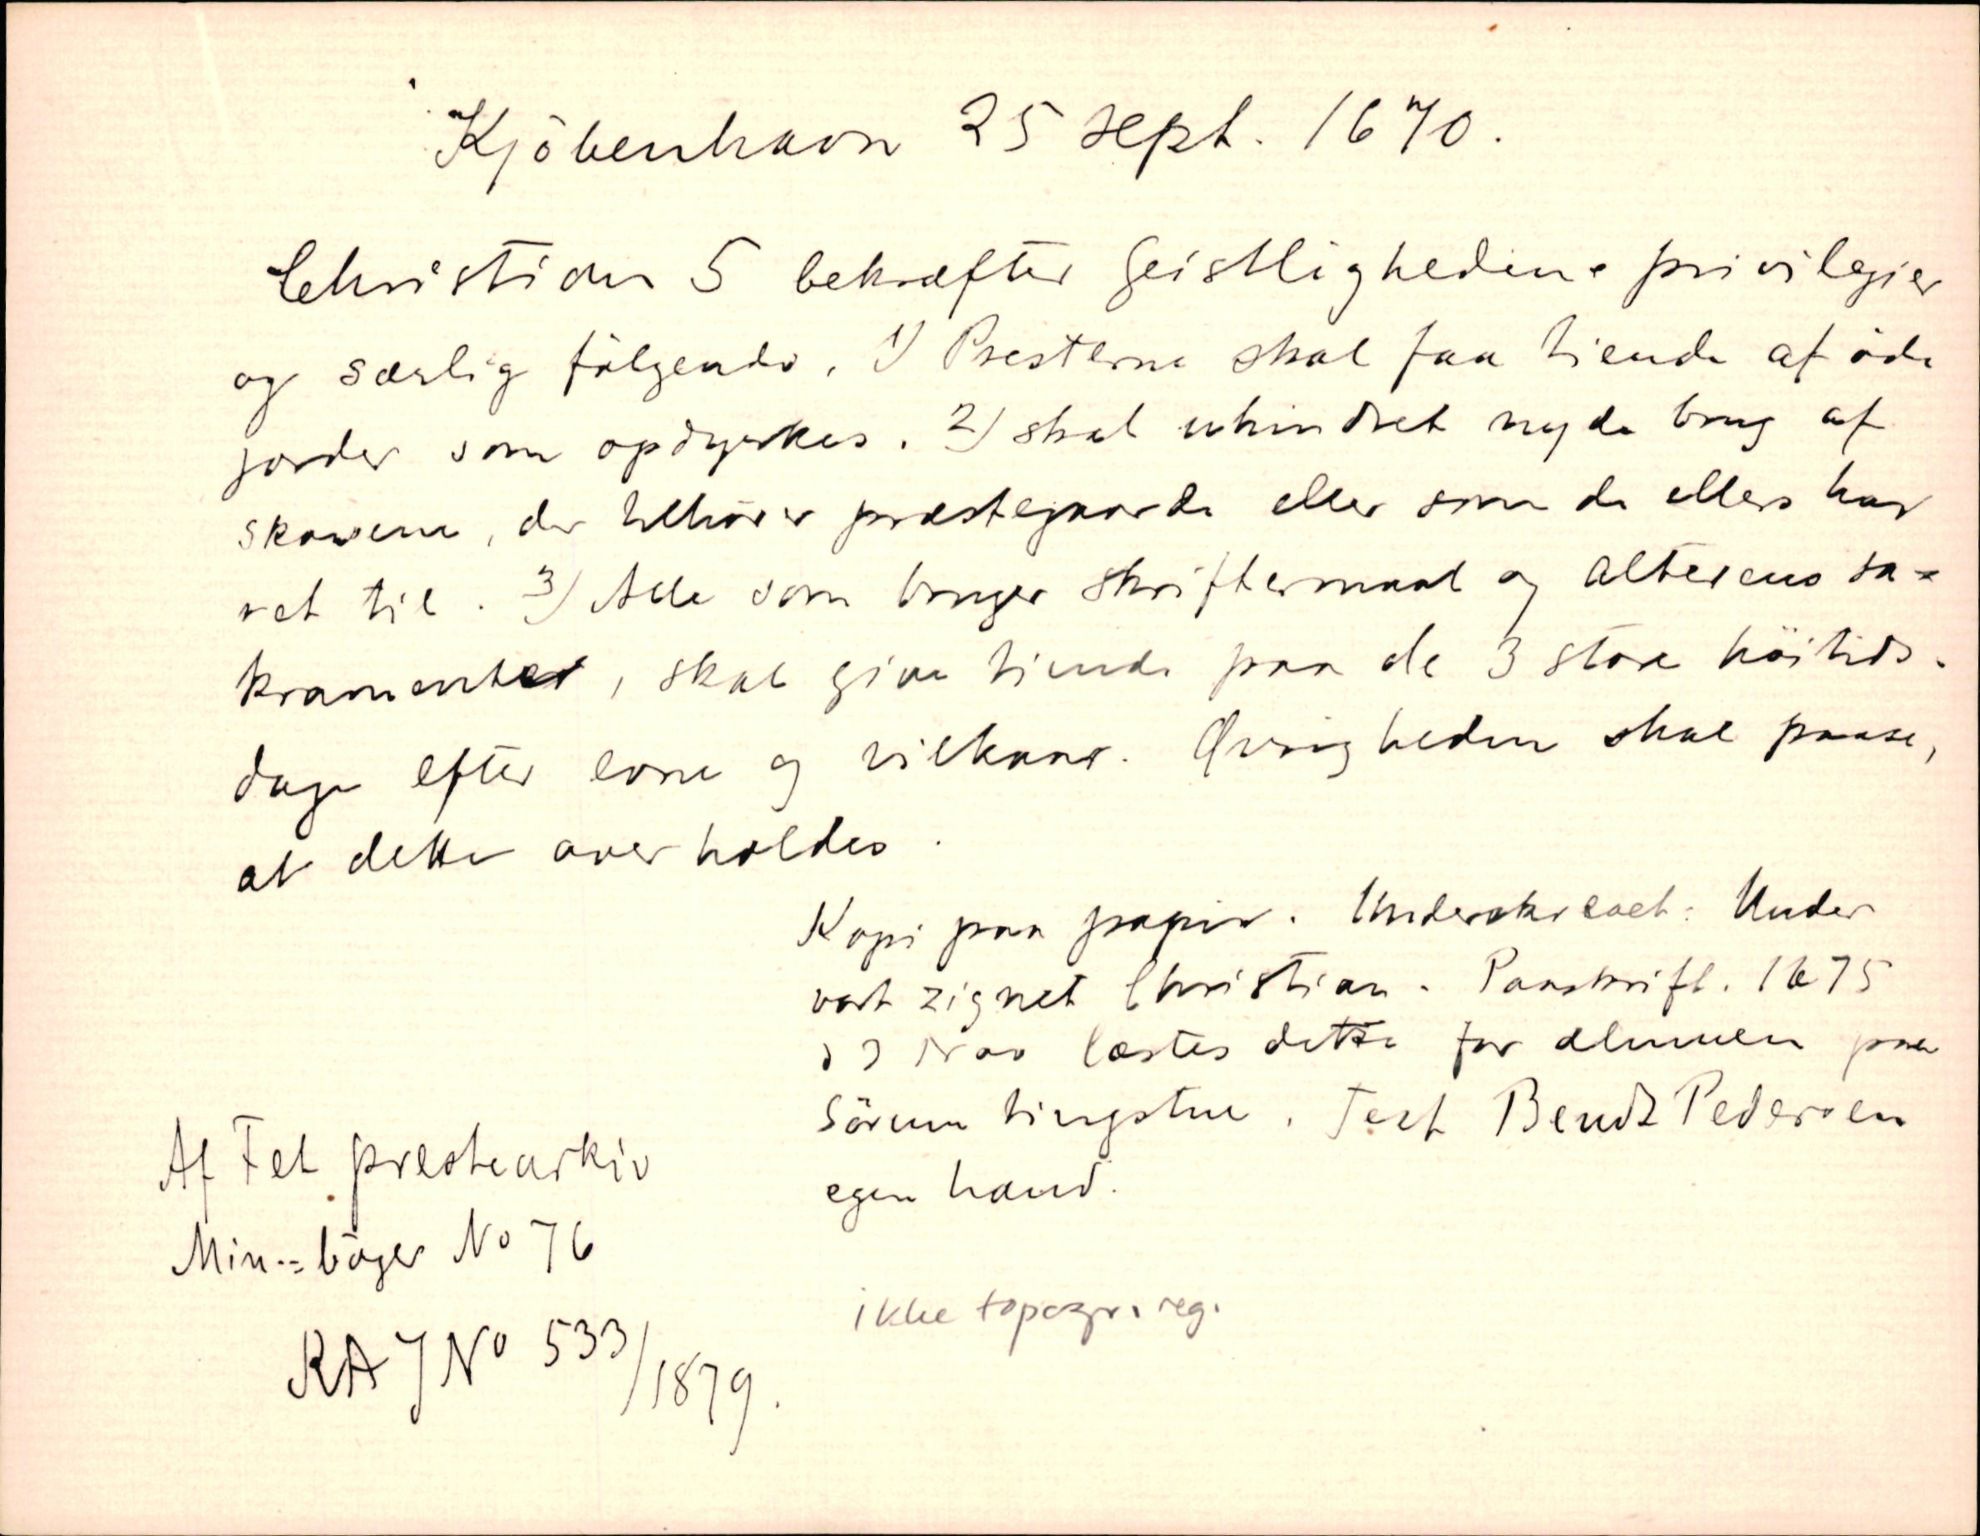 Kjöbenhavn 25 sept. 1670.
Christian 5 bekræfter Geistlighedens privilegier
og særlig fölgende. 1) Presterne skal faa tiende af öde
jorder som opdyrkes. 2) skal uhindret nyde brug af
skovene, der tilhörer præstegaarde eller som de ellers har
ret til. 3) Alle som bruger skriftermaal og alterens sa-
kramenter, skal give tiende paa de 3 store höitids-
dage efter evne og vilkaar. Øvrigheden skal paase,
at dette overholdes.
Kopi paa papir. Underskrevet: Under
vort zignet Christian. Paaskrift. 1675
d Nov læstes dette for almuen paa
Sörum tingstue. Test Bendt Pedersen
egen hand.
Af Fet prestearkiv
Min.-böger No 76
RA J No 533/1879.
ikke topogr. reg.